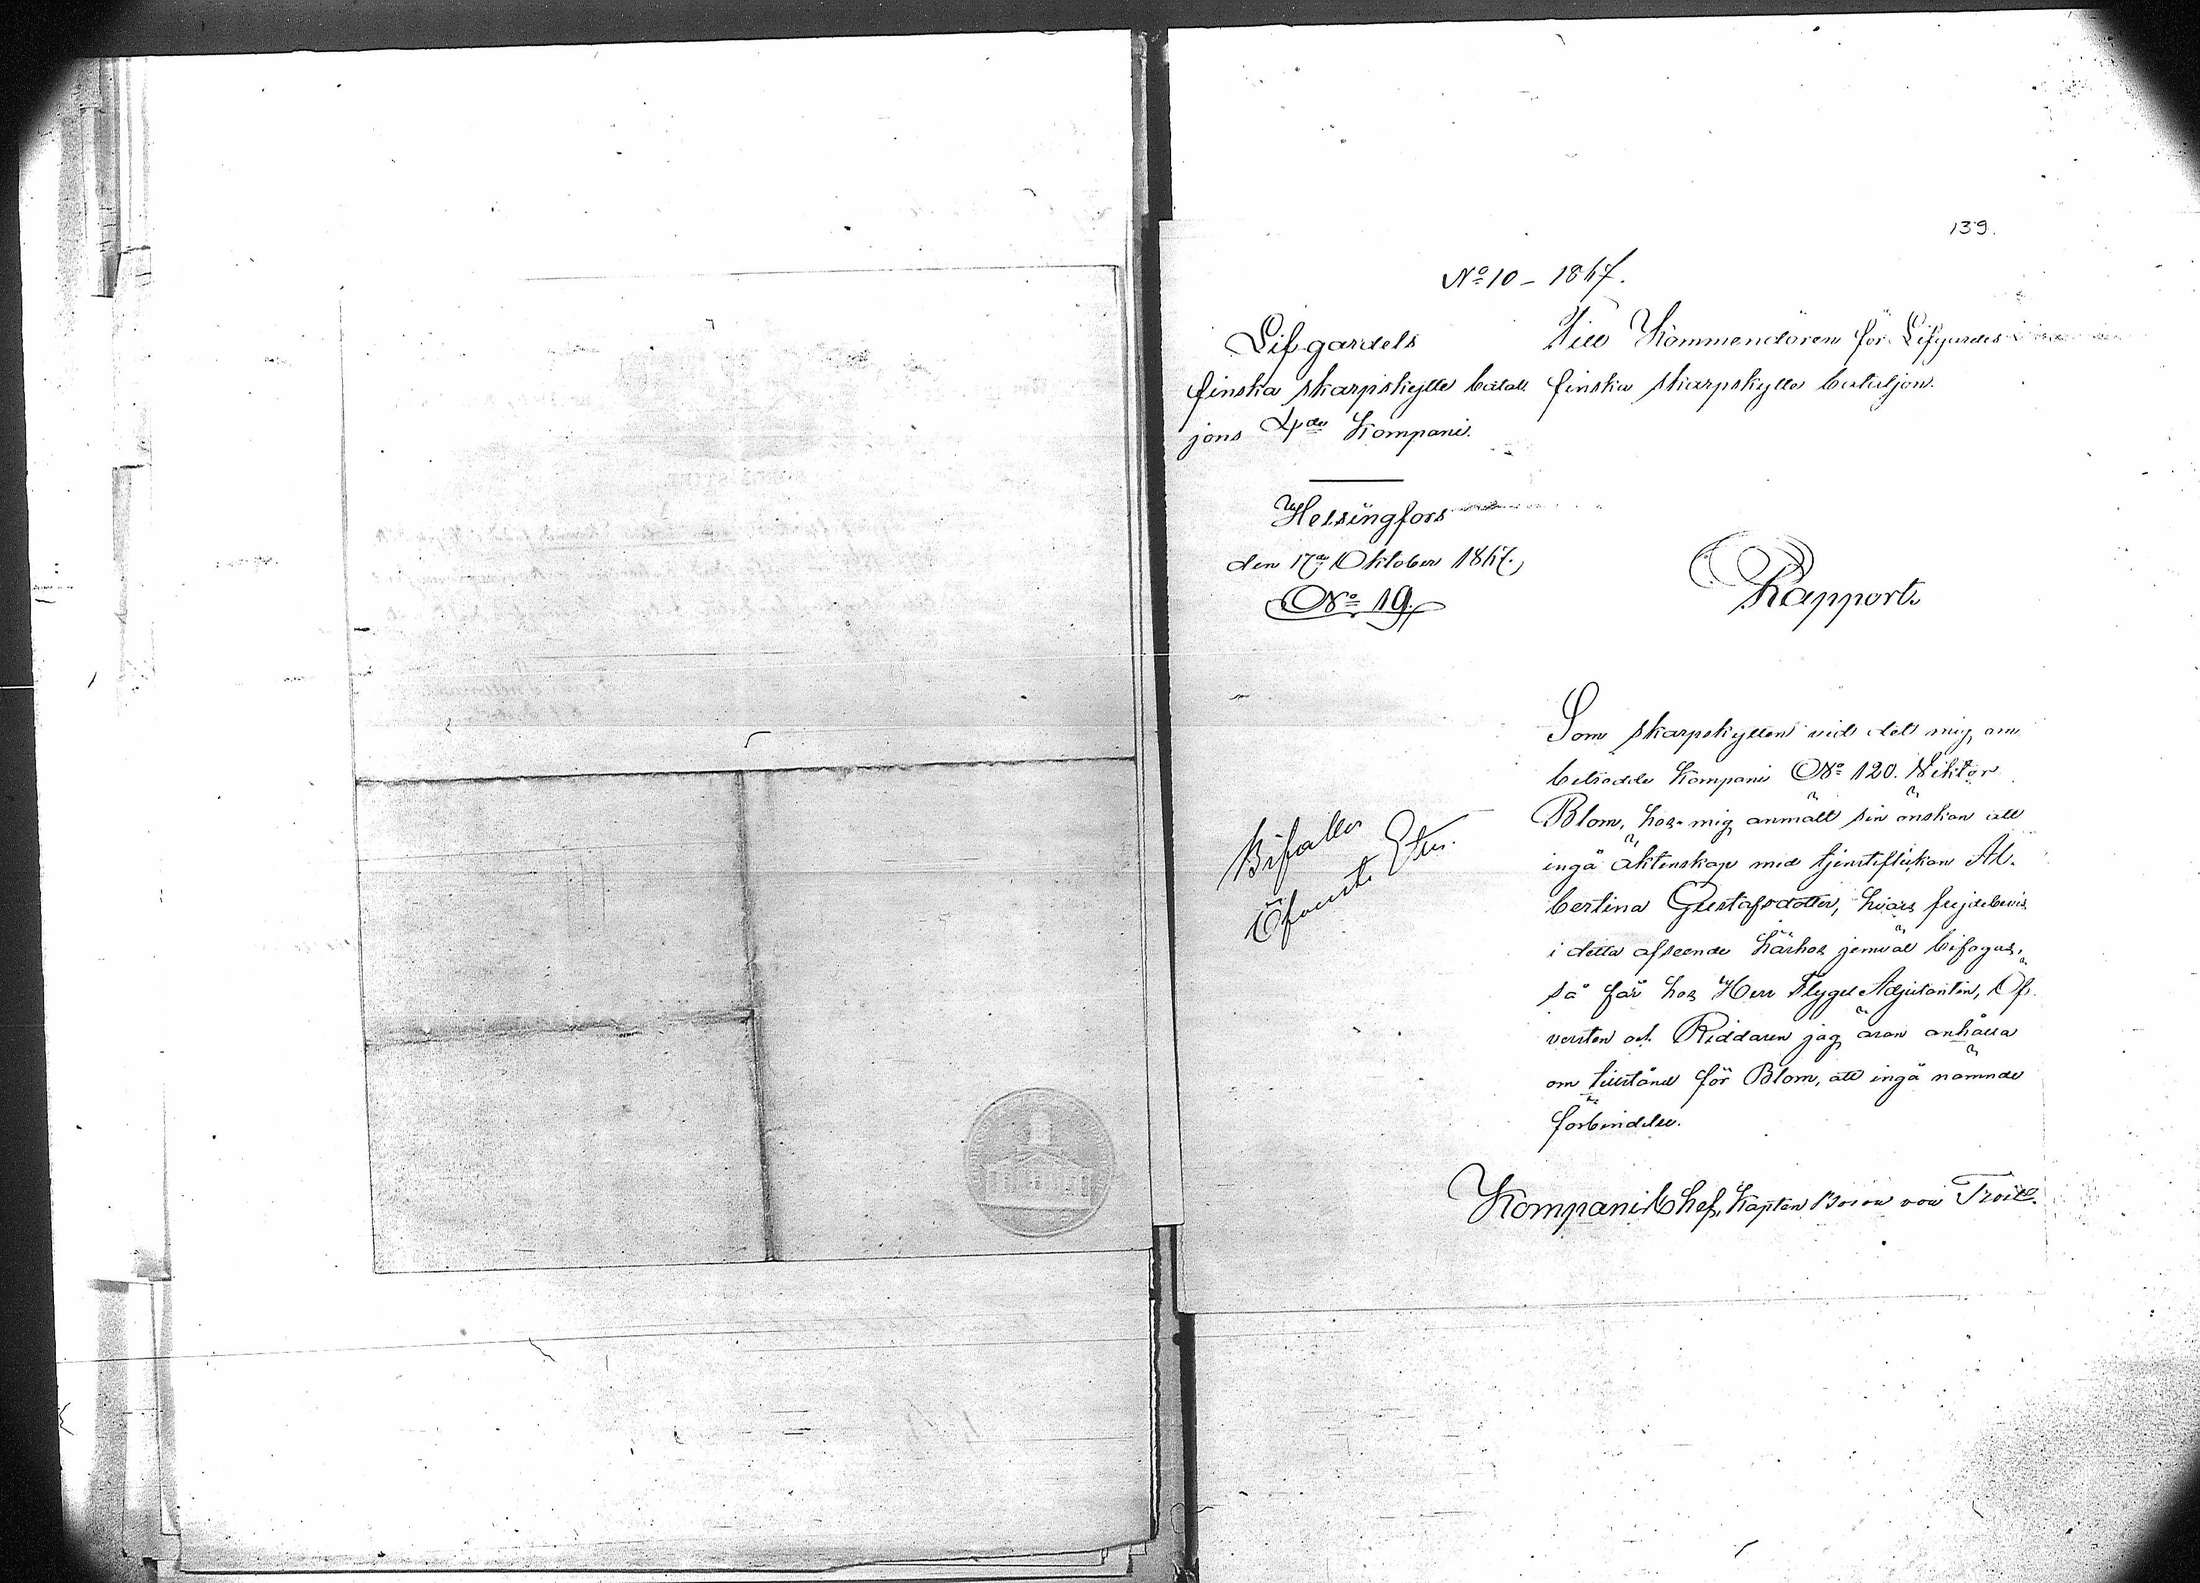 139.
No 10 - 1867.
Lifgardets
finska skarpskytte batalj
jons 4de Kompani.
Helsingfors
den 17de Oktober 1867.
No 19.
Till Kommendören för Lifgardets
finska skarpskytte bataljon.
Rapport.
Som skarpskytten vid det mig an
betrodde kompani No 120. Wiktor
Blom, hos mig anmält sin önskan att
ingå äktenskap med tjensteflickan Al-
bertina Gustafsdotter, hvars frejdebevis
i detta afseende härhos jemväl bifogas,
så får hos Herr Flygel Adjutanten, Öf-
versten och Riddaren jag äran anhålla
om tillstånd för Blom, att ingå nämnde
förbindelse.
Bifalles
Öfverste
Kompani Chef, Kapten Baron von Troil.